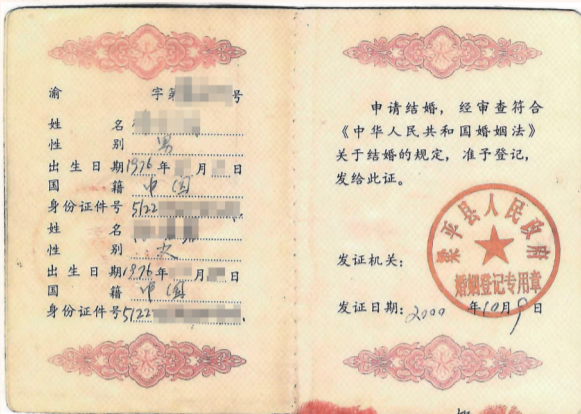 渝 字第 号
姓 名
性 别 男
出生日期 1976年 月 日
国 籍 中国
身份证件号 5122
姓 名
性 别 女
出生日期 1976年 月 日
国 籍 中国
身份证件号 5122
申请结婚，经审查符合
《中华人民共和国婚姻法》
关于结婚的规定，准予登记，
发给此证。
梁平县人民政府
婚姻登记专用章
发证机关：
发证日期：2000 年10月9日